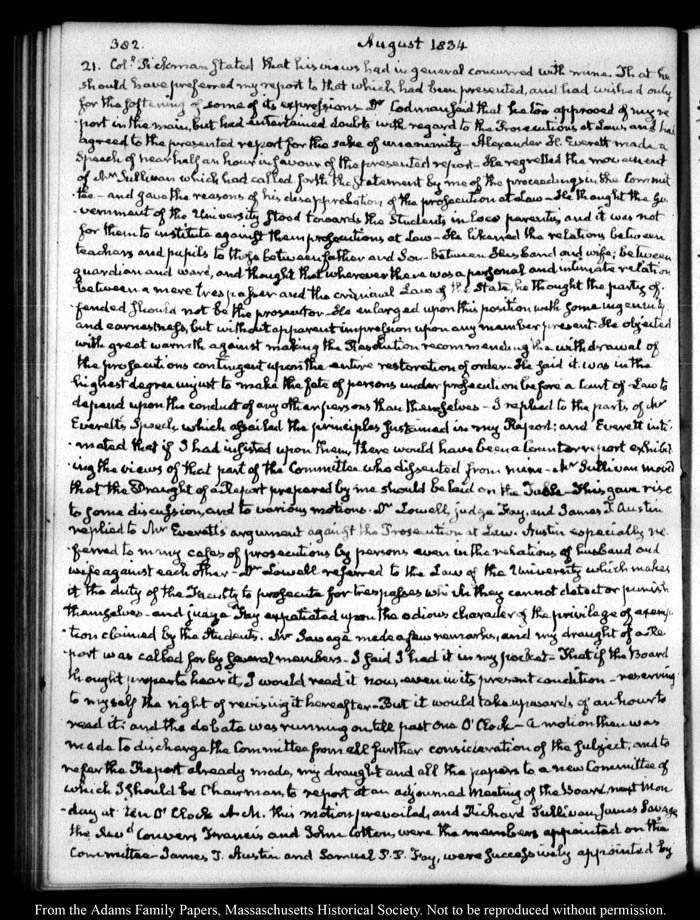 382. August 1834
21. Col.ᵉ Pickman stated that his views had in general concurred with mine. That he
should have preferred my report to that which had been presented, and had wished only
for the softening of some of its expressions. Dr Codman said that he too approved of my re
port in the main, but had entertained doubts with regard to the Prosecutions at Law, and had
agreed to the presented report for the sake of unanimity. Alexander H. Everett made a
speech of near half an hour in favour of the presented report. He regretted the movement
of Mr Sullivan which had called forth the statement by me of the proceedings in the Commit
tee— and gave the reasons of his disapprobation of the prosecution at Law— He thought the Go
vernment of the University stood towards the Students in loco parentis, and it was not
for them to institute against them prosecutions at Law— He likened the relations between
teachers and pupils to those between father and Son— between Husband and wife; between
guardian and ward, and thought that wherever there was a personal and intimate relation
between a mere trespasser and the criminal Law of the State, he thought the party of-
fended should not be the prosecutor— He enlarged upon this position with some ingenuity
and earnestness, but without apparent impression upon any member present. He objected
with great warmth against making the Resolution recommending the withdrawal of
the prosecutions contingent upon the entire restoration of order— He said it was in the
highest degree unjust to make the fate of persons under prosecution before a Court of Law to
depend upon the conduct of any other persons than themselves— I replied to the parts of Mr
Everett's Speech which assailed the principles sustained in my Report; and Everett inti
mated that if I had insisted upon them, there would have been a Counter report exhibit
ing the views of that part of the Committee who dissented from mine— Mr Sullivan moved
that the Draught of a Report prepared by me should be laid on the Table— This gave rise
to some discussion, and to various motions. Dr Lowell, judge Fay, and James T Austin
replied to Mr Everett's argument against the Prosecution at Law. Austin especially re
ferred to many cases of prosecutions by persons even in the relations of husband and
wife against each other— Dr Lowell referred to the Law of the University which makes
it the duty of the Faculty to prosecute for trespasses which they cannot detect or punish
themselves— and judge Fay expatiated upon the odious character of the privilege of exemp
tion claimed by the Students. Mr Savage made a few remarks, and my draught of a Re
port was called for by several members— I said I had it in my pocket— That if the Board
thought proper to hear it, I would read it now, even in its present condition— reserving
to myself the right of revising it hereafter— But it would take upwards of an hour to
read it; and the debate was running on till past One O'Clock— A motion then was
made to discharge the Committee from all further consideration of the subject, and to
refer the Report already made, my draught and all the papers to a new Committee of
which I should be Chairman, to report at an adjourned Meeting of the Board next Mon
day at ten O'Clock A.M. this motion prevailed, and Richard Sullivan, James Savage
the Revd Convers Francis and John Cotton, were the members appointed on the
Committee— James T. Austin and Samuel P. P. Fay, were successively appointed by
From the Adams Family Papers, Massachusetts Historical Society. Not to be reproduced without permission.